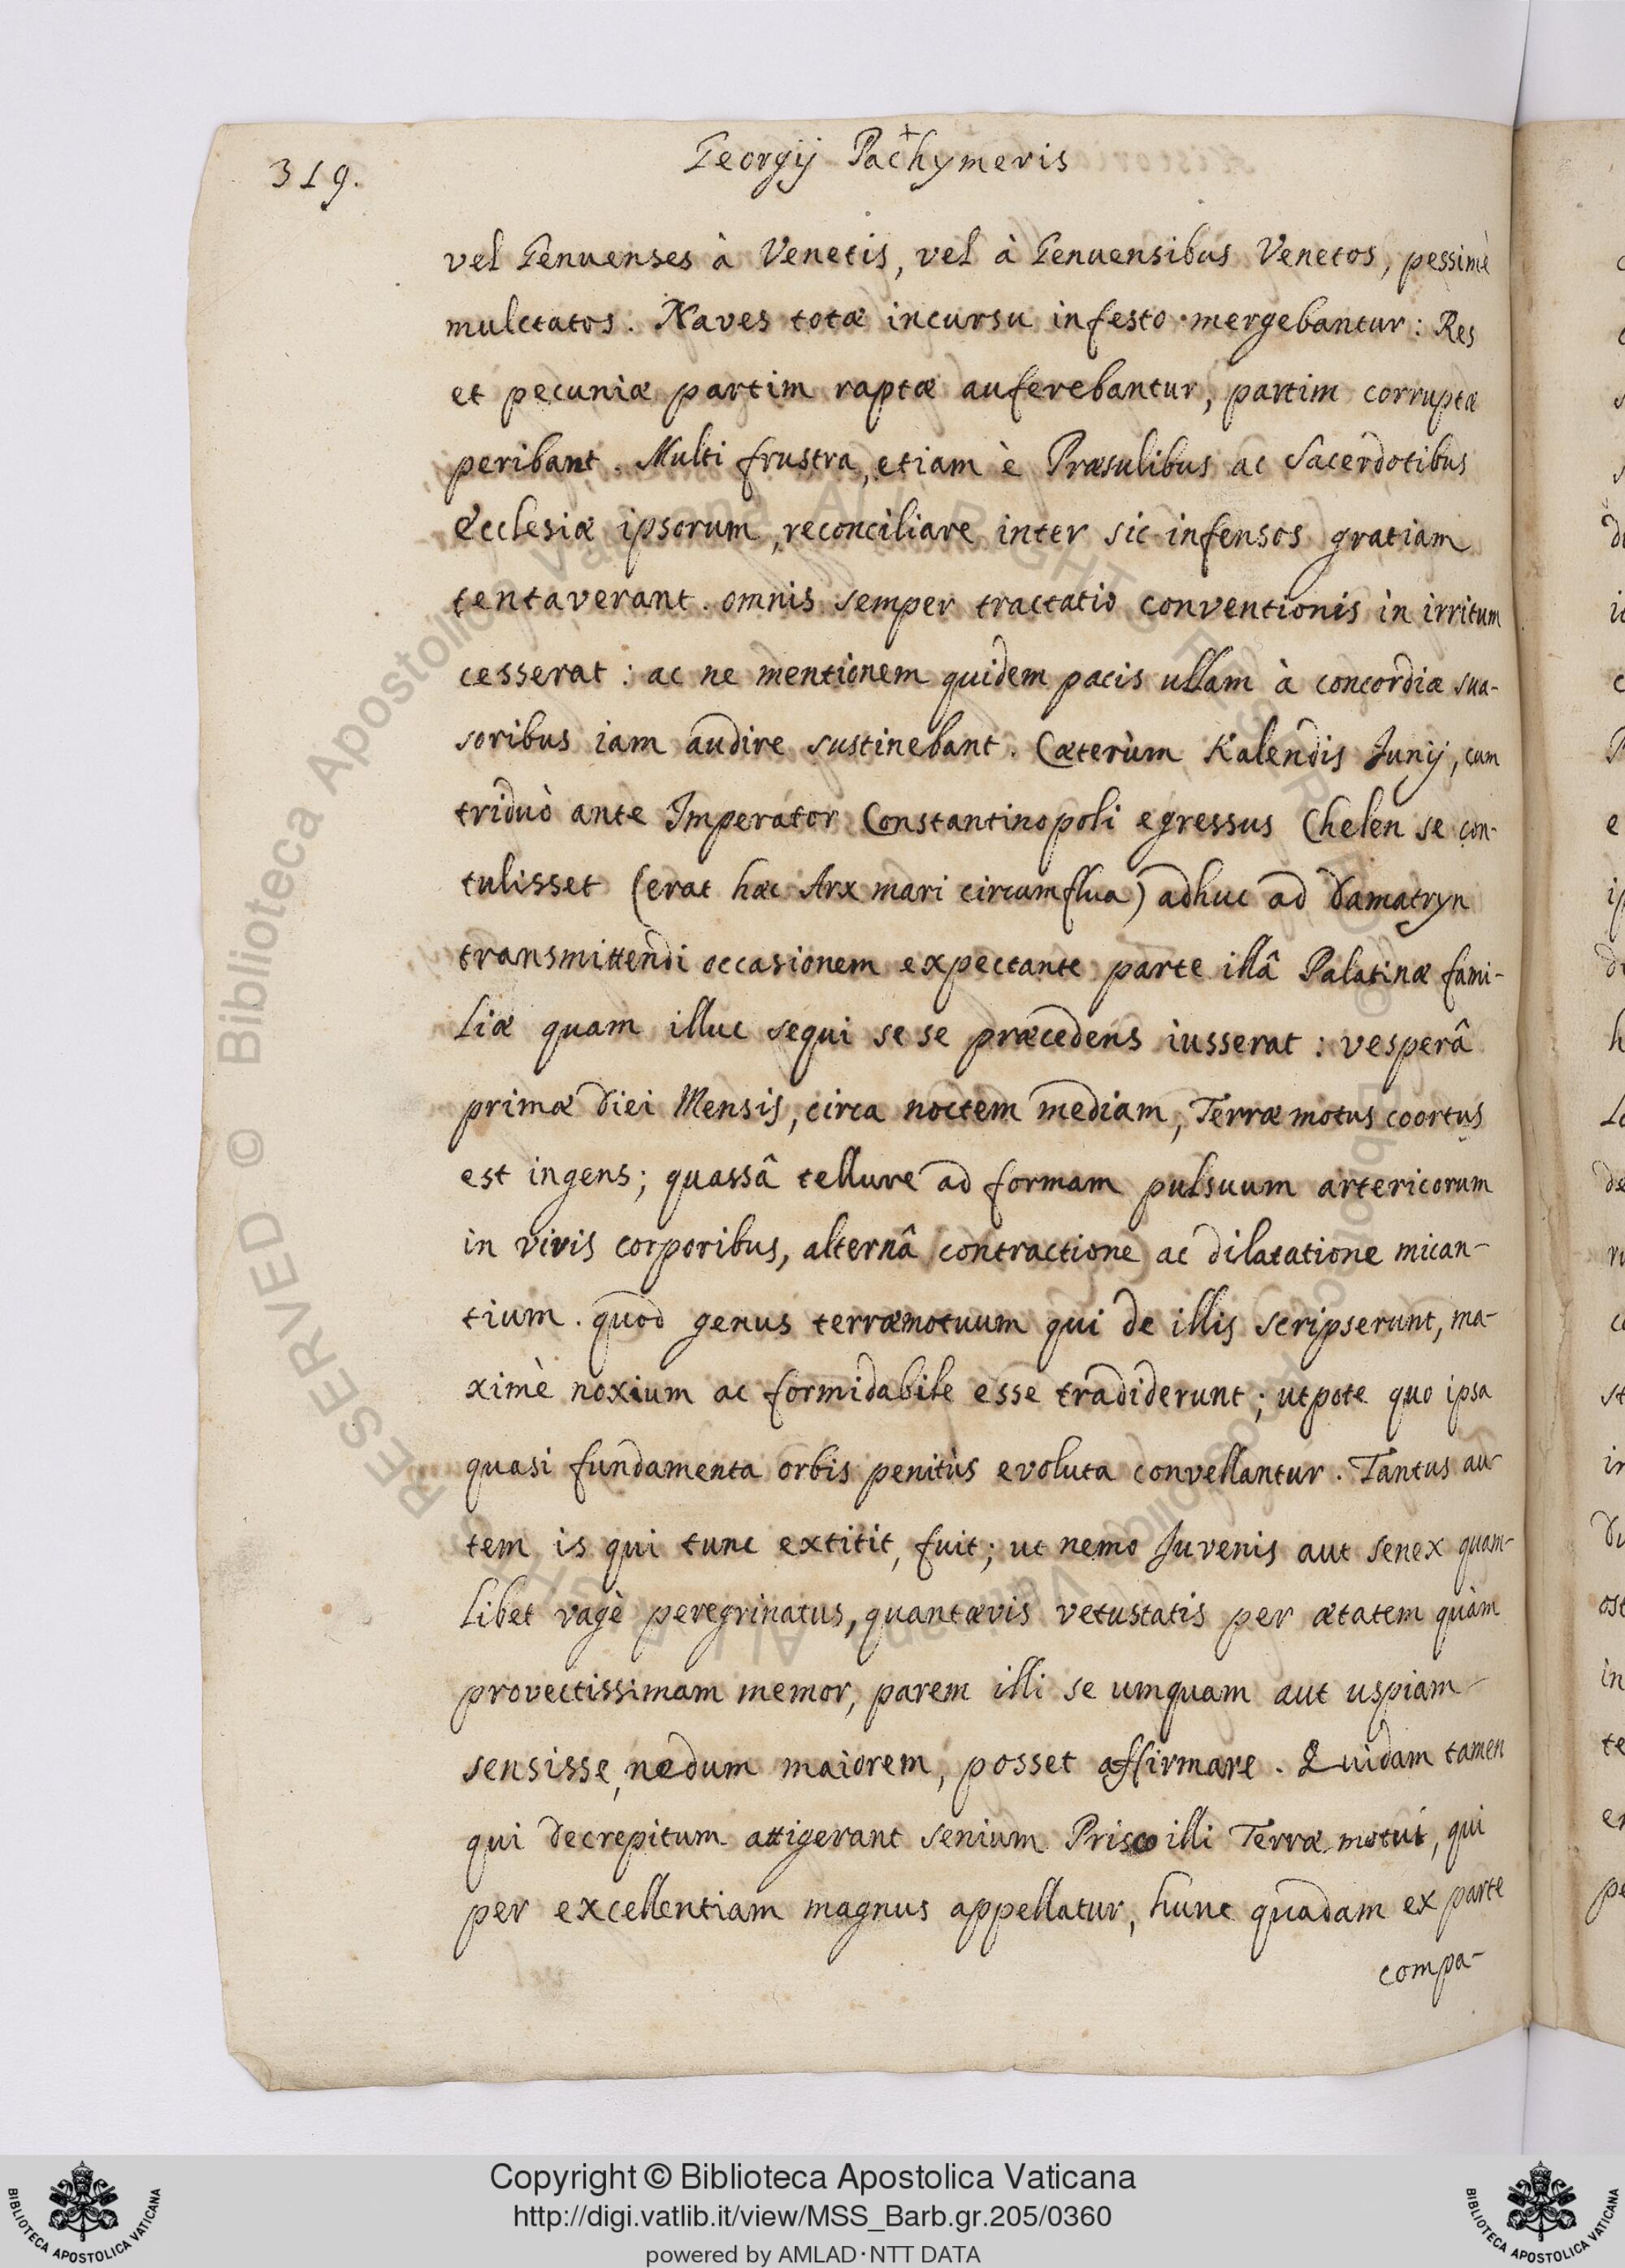 319.
Georgij Pachymeris
vel Genuenses à Venetis, vel à Genuensibus Venetos, pessimè
mulctatos. Naves totæ incursu infesto mergebantur: Res
et pecuniæ partim raptæ auferebantur, partim corruptæ
peribant. Multi frustra, etiam è Præsulibus ac Sacerdotibus
Ecclesiæ ipsorum, reconciliare inter sic infensos gratiam
tentaverant. omnis semper tractatio conventionis in irritum
cesserat: ac ne mentionem quidem pacis ullam à concordiæ sua-
soribus iam audire sustinebant. Cæterùm Kalendis Junij, cum
triduò ante Imperator Constantinopoli egressus Chelen se con-
tulisset (erat hæc Arx mari circumflua) adhuc ad Damatryn
transmittendi occasionem expectante parte illâ Palatinæ fami-
liæ quam illuc sequi se se præcedens iusserat: vesperâ
primæ diei Mensis, circa noctem mediam, Terræ motus coortus
est ingens; quassâ tellure ad formam pulsuum artericorum
in vivis corporibus, alternâ contractione ac dilatatione mican-
tium. quod genus terræmotuum qui de illis scripserunt, ma-
ximè noxium ac formidabile esse tradiderunt; utpote quo ipsa
quasi fundamenta orbis penitùs evoluta convellantur. Tantus au-
tem is qui tunc extitit, fuit; ut nemo Juvenis aut senex quam-
libet vagè peregrinatus, quantævis vetustatis per ætatem quàm
provectissimam memor, parem illi se umquam aut uspiam
sensisse, nædum maiorem, posset affirmare. Quidam tamen
qui decrepitum attigerant senium Prisco illi Terræ motui, qui
per excellentiam magnus appellatur, hunc quadam ex parte
compa-
Copyright © Biblioteca Apostolica Vaticana
http://digi.vatlib.it/view/MSS_Barb.gr.205/0360
powered by AMLAD·NTT DATA
BIBLIOTECA APOSTOLICA VATICANA
BIBLIOTECA APOSTOLICA VATICANA